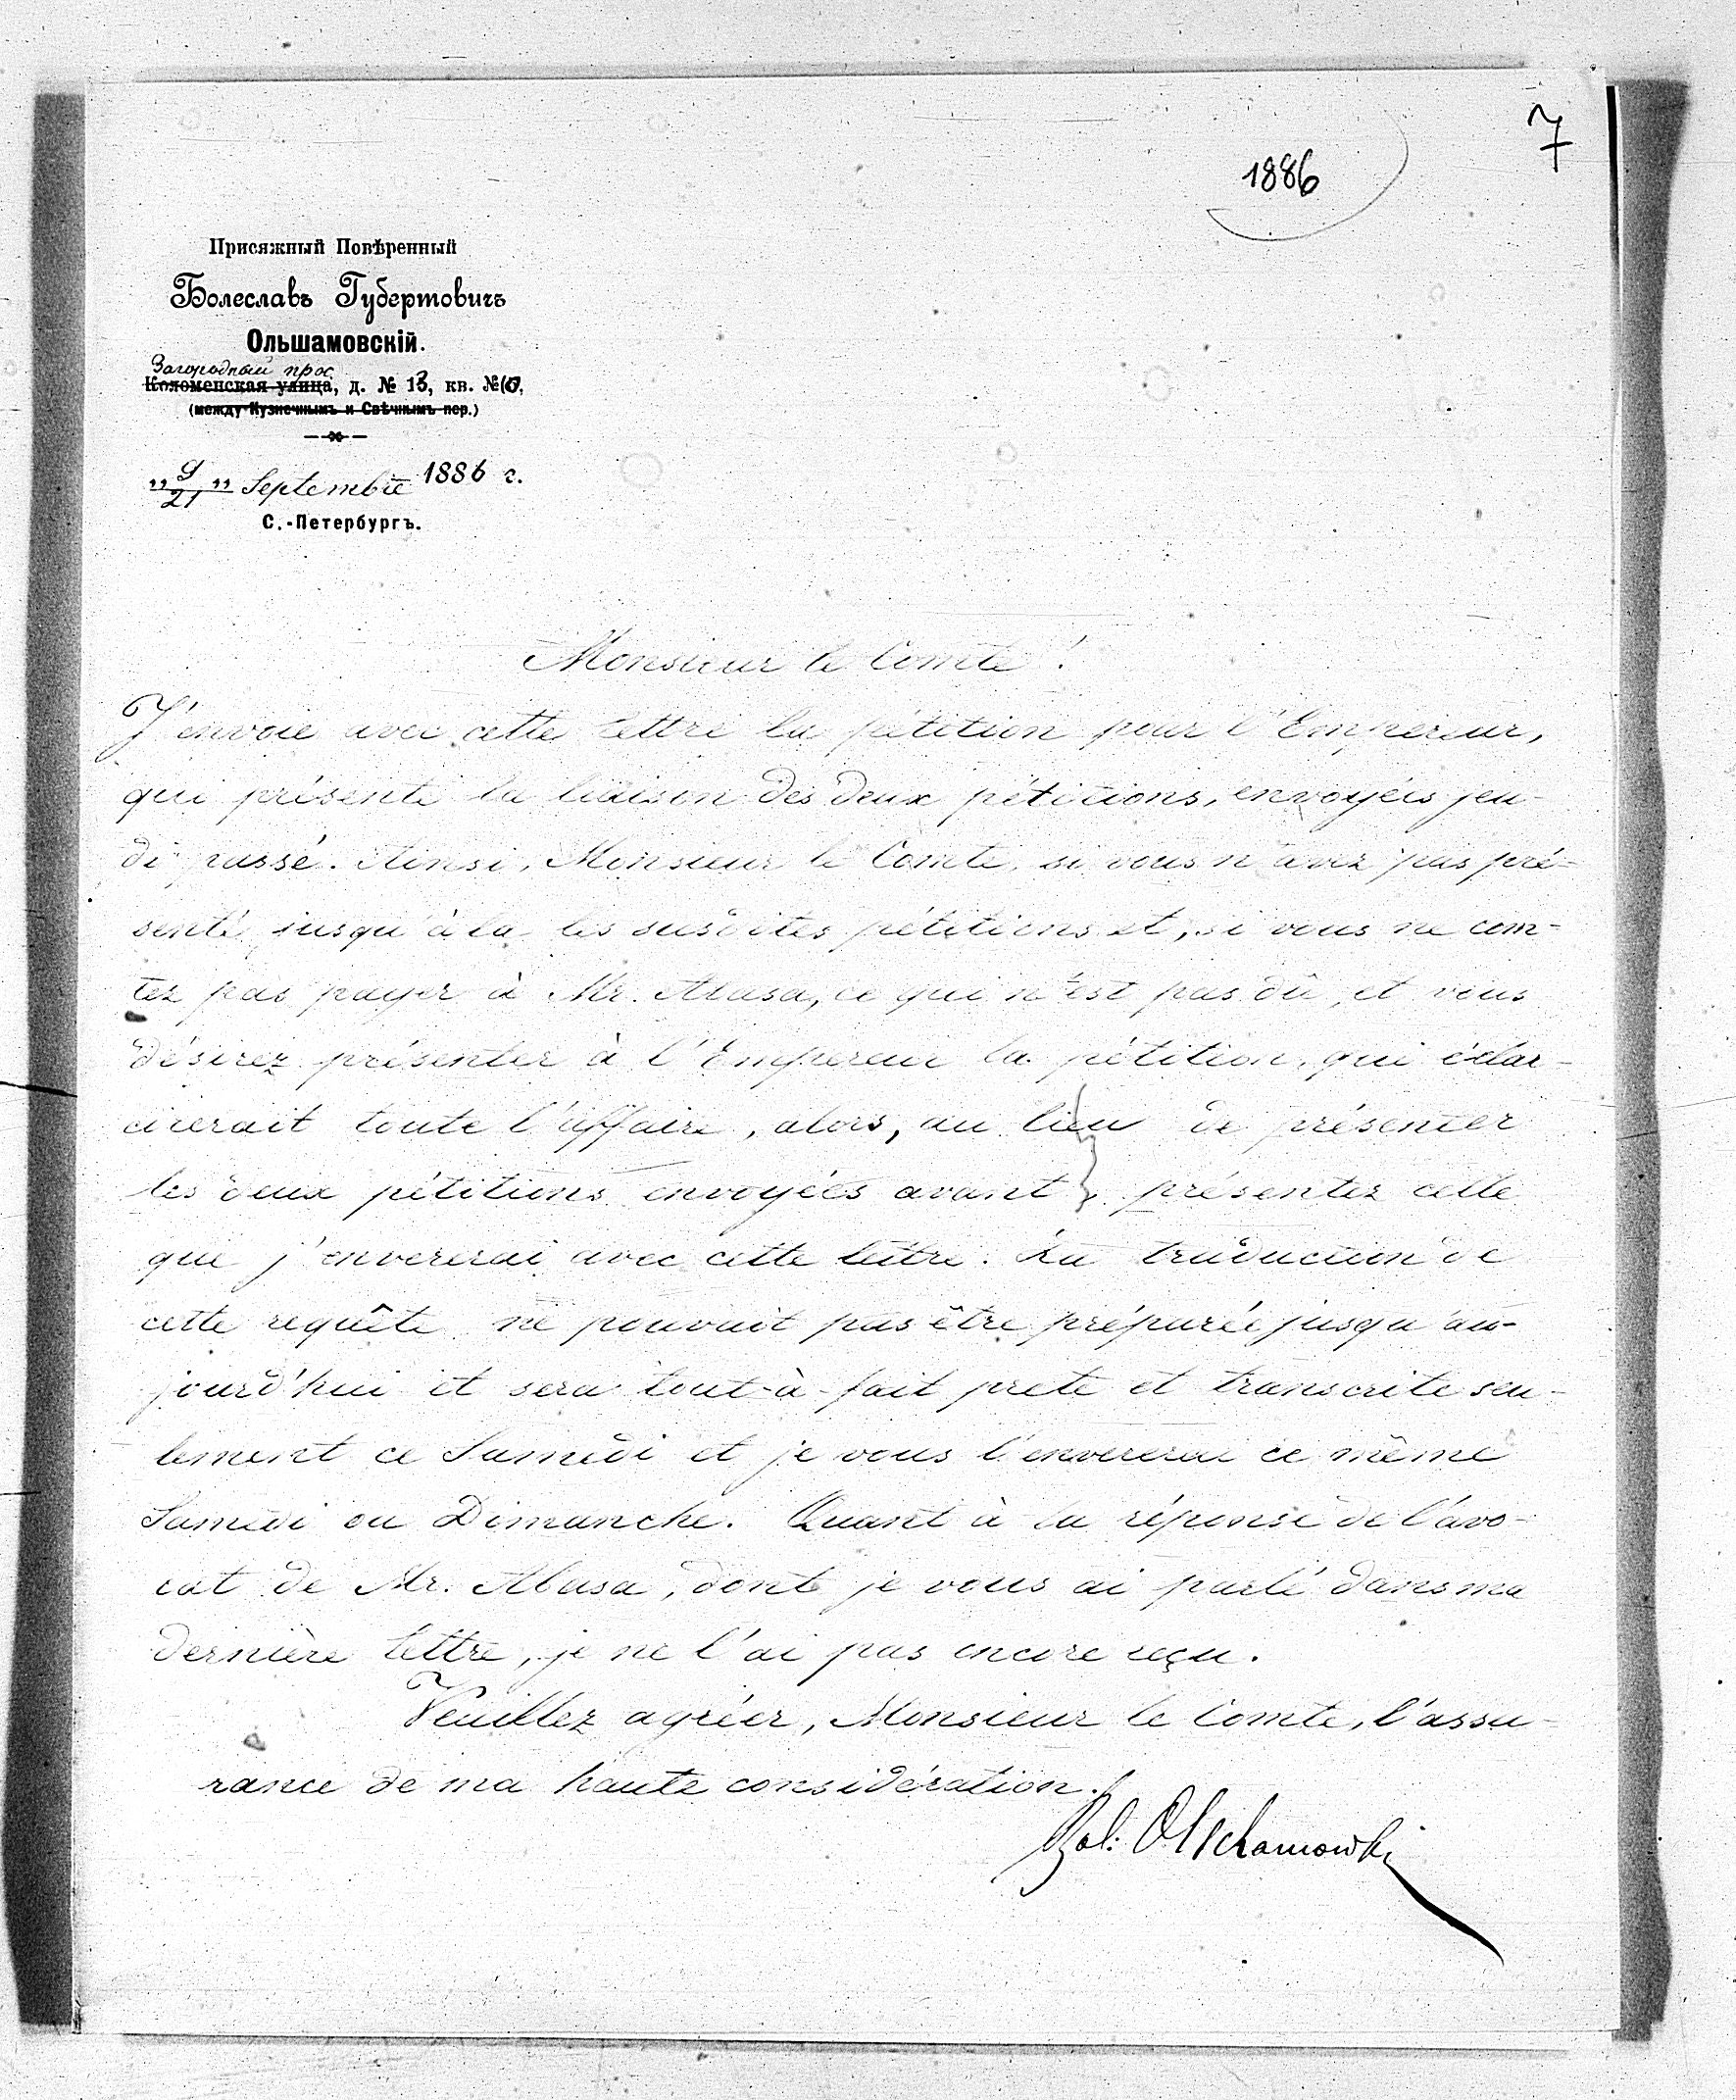 7
1886
Присяжный Повѣренный
Болеславъ Губертовичъ
Ольшамовскій.
Загородный прос.
Коломенская улица, д. № 13, кв. №10,
(между Кузнечнымъ и Свѣчнымъ пер.)
„9/21” Septembre 1886 г.
С.-Петербургъ.
Monsieur le Comte!
J'envoie avec cette lettre la pétition pour l'Empereur,
qui présente la liaison des deux pétitions, envoyées jeu-
di passé. Ainsi, Monsieur le Comte, si vous n'avez pas pré-
senté jusqu'à la les susdites pétitions et, si vous ne com-
tez pas payer à Mr. Abasa, ce qui n'est pas dû, et vous
désirez présenter à l'Empereur la pétition, qui éclar-
cirerait toute l'affaire, alors, au lieu de présenter
les deux pétitions envoyées avant, présentez celle
que j'envererai avec cette lettre. La traduction de
cette requête ne pouvait pas être préparée jusqu'au-
jourd'hui et sera tout-à-fait prete et transcrite seu-
lement ce Samedi et je vous l'envererai ce même
Samedi ou Dimanche. Quant à la réponse de l'avo-
cat de Mr. Abasa, dont je vous ai parlé dans ma
dernière lettre, je ne l'ai pas encore reçu.
Veuillez agréer, Monsieur le Comte, l'assu-
rance de ma haute considération.
Bol: Olschamowski